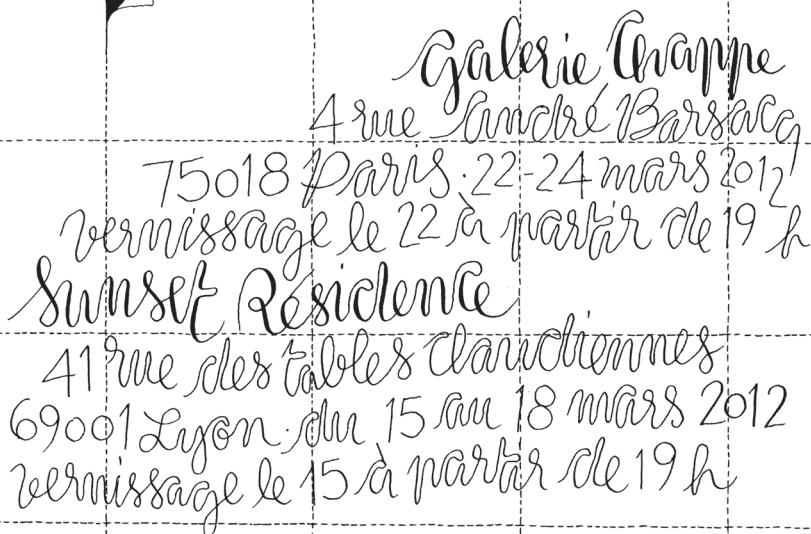 Galerie Chappe
4 rue André Barsacq
75018 Paris. 22-24 mars 2012
vernissage le 22 à partir de 19 h
Sunset Résidence
41 rue des tables claudiennes
69001 Lyon. du 15 au 18 mars 2012
vernissage le 15 à partir de 19 h